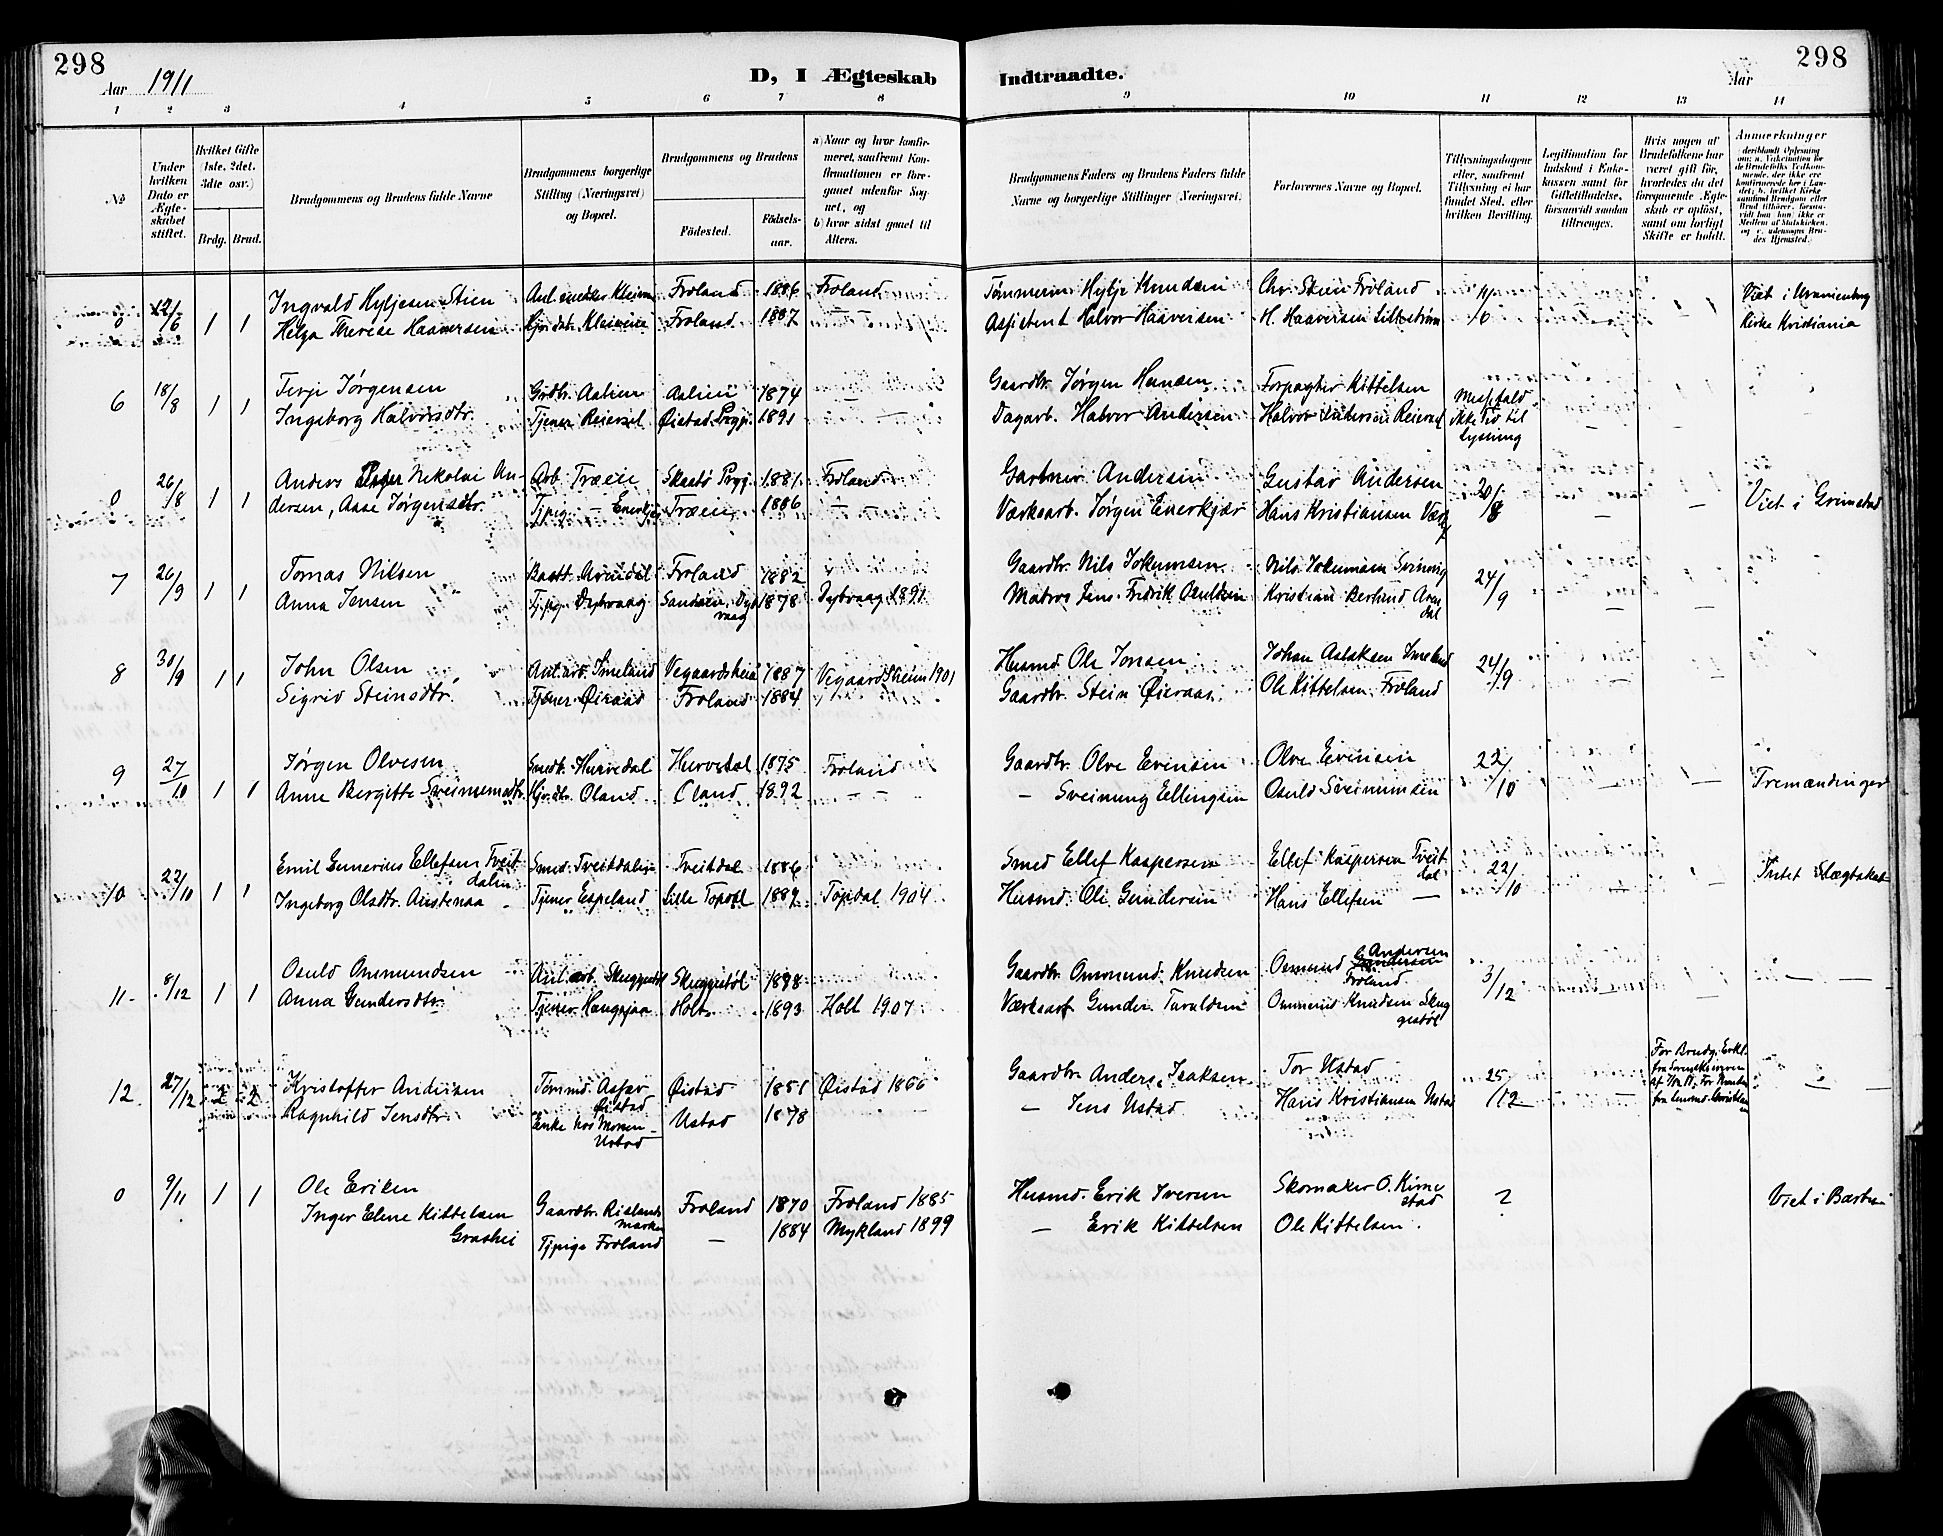 298
Aar 1911
D, I Ægteskab
1 2 3 4 5 6 7 8
№
Under hvilken Dato er Ægteskabet stiftet.
Hvilket Gifte (1ste, 2det, 3dte osv.)
Brdg. Brud.
Brudgommens og Brudens fulde Navne
Brudgommens borgerlige Stilling (Næringsvei) og Bopæl.
Brudgommens og Brudens
Födested.
Födselsaar.
a) Naar og hvor konfirmeret, saafremt Konfirmationen er foregaaet udenfor Sognet, og
b) hvor sidst gaaet til Alters.
0 12/6 1 1 Ingvald Hyljesen Stien Froland 1886 Froland
Helga Therese Haaversen Froland 1887
6 18/8 1 1 Terje Jørgensen Grdbr. Aalien Aalien 1874
Ingeborg Halvorsdtr. Tjener Reiersøl Øiestad Prgj. 1891
0 26/8 1 1 Anders Nikolai An- Arb. Træen Skaatø Prgj. 1881 Froland
dersen, Aase Jørgensdtr. Tjpig. Træen 1886
7 26/9 1 1 Tomas Nilsen Arendal Froland 1882
Anna Jensen Tjpig. Dybvaag Sandøen, Dybvaag 1878 Dybvaag 1891
8 30/9 1 1 John Olsen Anl.arb. Imeland Vegaardsheia 1887 Vegaardsheim 1901
Sigrid Steinsdtr. Tjener Øiraas Froland 1884
9 27/10 1 1 Jørgen Olvesen Hurvedal Hurvedal 1875 Froland
Anne Bergitte Sveinsemsdtr. Oland Oland 1892
10 22/10 1 1 Emil Gunerius Ellefsen Tveit- Smed Tveitdalen Tveitdal 1886
dalen
Ingeborg Olsdtr. Austenaa Tjener Espeland Lille Topdal 1889 Topdal 1904
11 8/12 1 1 Osuld Ommundsen Anl. arb. Skuggestøl Skuggestøl 1888
Anna Gundersdtr. Tjener Holt 1893 Holt 1907
12 27/12 2 2 Kristoffer Andersen Tømmd. Asfer Øistad Øistad 1851 Øistad 1866
Ragnhild Jensdtr. Enke hos Moren Ustad Ustad 1878
0 9/11 1 1 Ole Eriksen Gaardbr. Rislandsmarken Froland 1870 Froland 1885
Inger Eline Kittelsen Tjpige Froland — 1884 Mykland 1899
Grashei
298
Indtraadte.
Aar
9 10 11 12 13 14
Brudgommens Faders og Brudens Faders fulde Navne og borgerlige Stillinger (Næringsvei.
Forlovernes Navne og Bopæl.
Tillysningsdagene eller, saafremt Tillysning ei har fundet Sted, efter hvilken Bevilling.
Legitimation for Indskud i Enkekassen samt for Giftetilladelse, forsaavidt saadan tiltrænges.
Hvis nogen af Brudefolkene har været gift för, hvorledes da det foregaaende Ægteskab er oplöst, samt om lovligt Skifte er holdt.
Anmærkninger
Tømmerm. Hylje Knudsen Chr. Stien Froland 11/6 Viet i Uranienborg
Assistent Halvor Haaversen H. Haaversen Lillestrøm Kirke Kristiania
Gaardbr. Jørgen Hansen Forpagter Kittelsen
Dagarb. Halvor Andersen Halvor Andersen Reiersøl ikke Tid til lysning
Gartner Andersen Gustav Andersen 20/8
Værksarb. Jørgen Enerkjær Hans Kristiansen Viet i Grimstad
Gaardbr. Nils Jokumsen Nils Jokumsen 24/9
Matros Jens Fredrik Paulsen Kristian Berlund Arendal
Husmd. Ole Jonsen Johan Aslaksen Imeland 24/9
Gaardbr. Stein Øieraas Ole Kittelsen Froland
Gaardbr. Olve Evensen Olve Evensen 22/10
— Sveinung Ellingsen Osuld Sveinumsen Tremændinger
Smed Ellef Kaspersen Ellef Kaspersen Tveitdal 22/10
Husmd. Ole Gundersen Hans Ellefsen — Intet Slægtskab
Gaardbr. Ommund Knudsen Osmund Andersen Froland 3/12 —
Værksarb Gunder Taraldsen Ommund Knudsen Skuggestøl
Gaardbr. Anders Isaksen Tor Ustad 25/12
— Jens Ustad Hans Kristiansen Ustad
Husmd. Erik Iversen Skomaker O. Kirnestad ? Viet i Barbu
— Erik Kittelsen Ole Kittelsen.